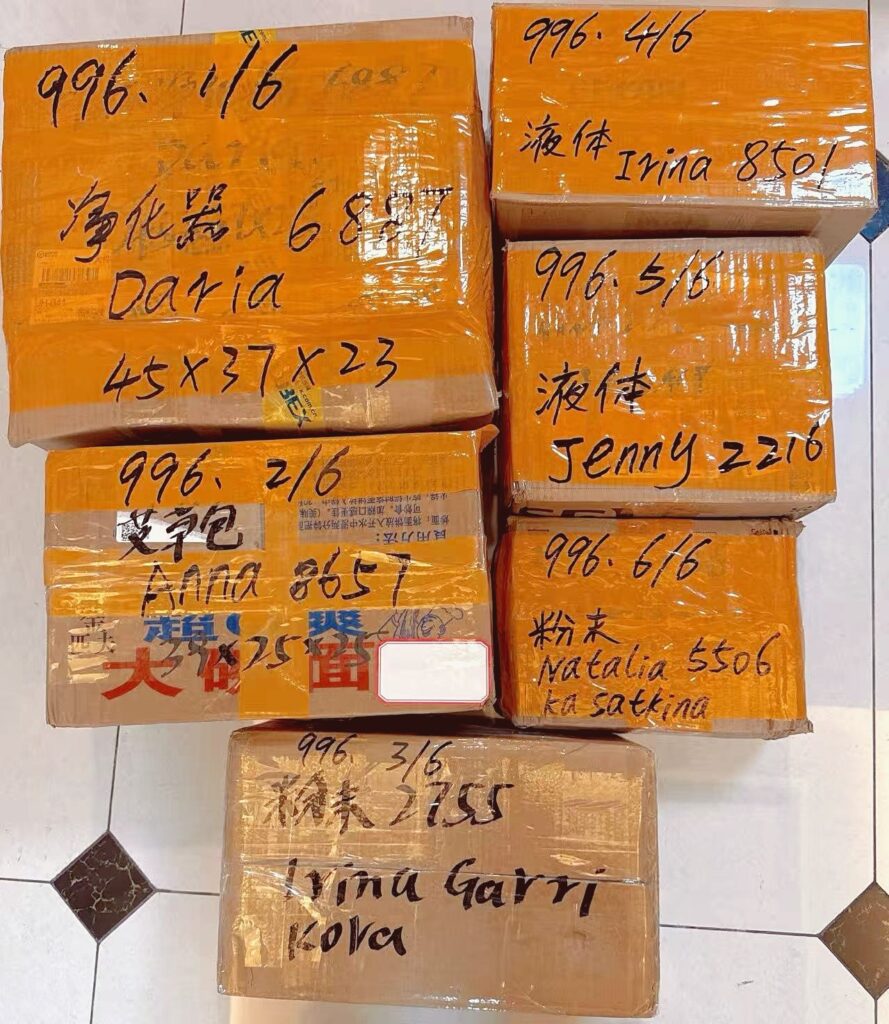 996. 1/6
净化器 6887
Daria
45×37×23
BEX
996. 2/6
艾草包
Anna 8657
食用方法:
大 面
34×25×25
996. 3/6
粉末 2755
Irina Garri
kova
996. 4/6
液体 Irina 8501
996. 5/6
液体
Jenny 2216
996. 6/6
粉末
Natalia 5506
ka satkina